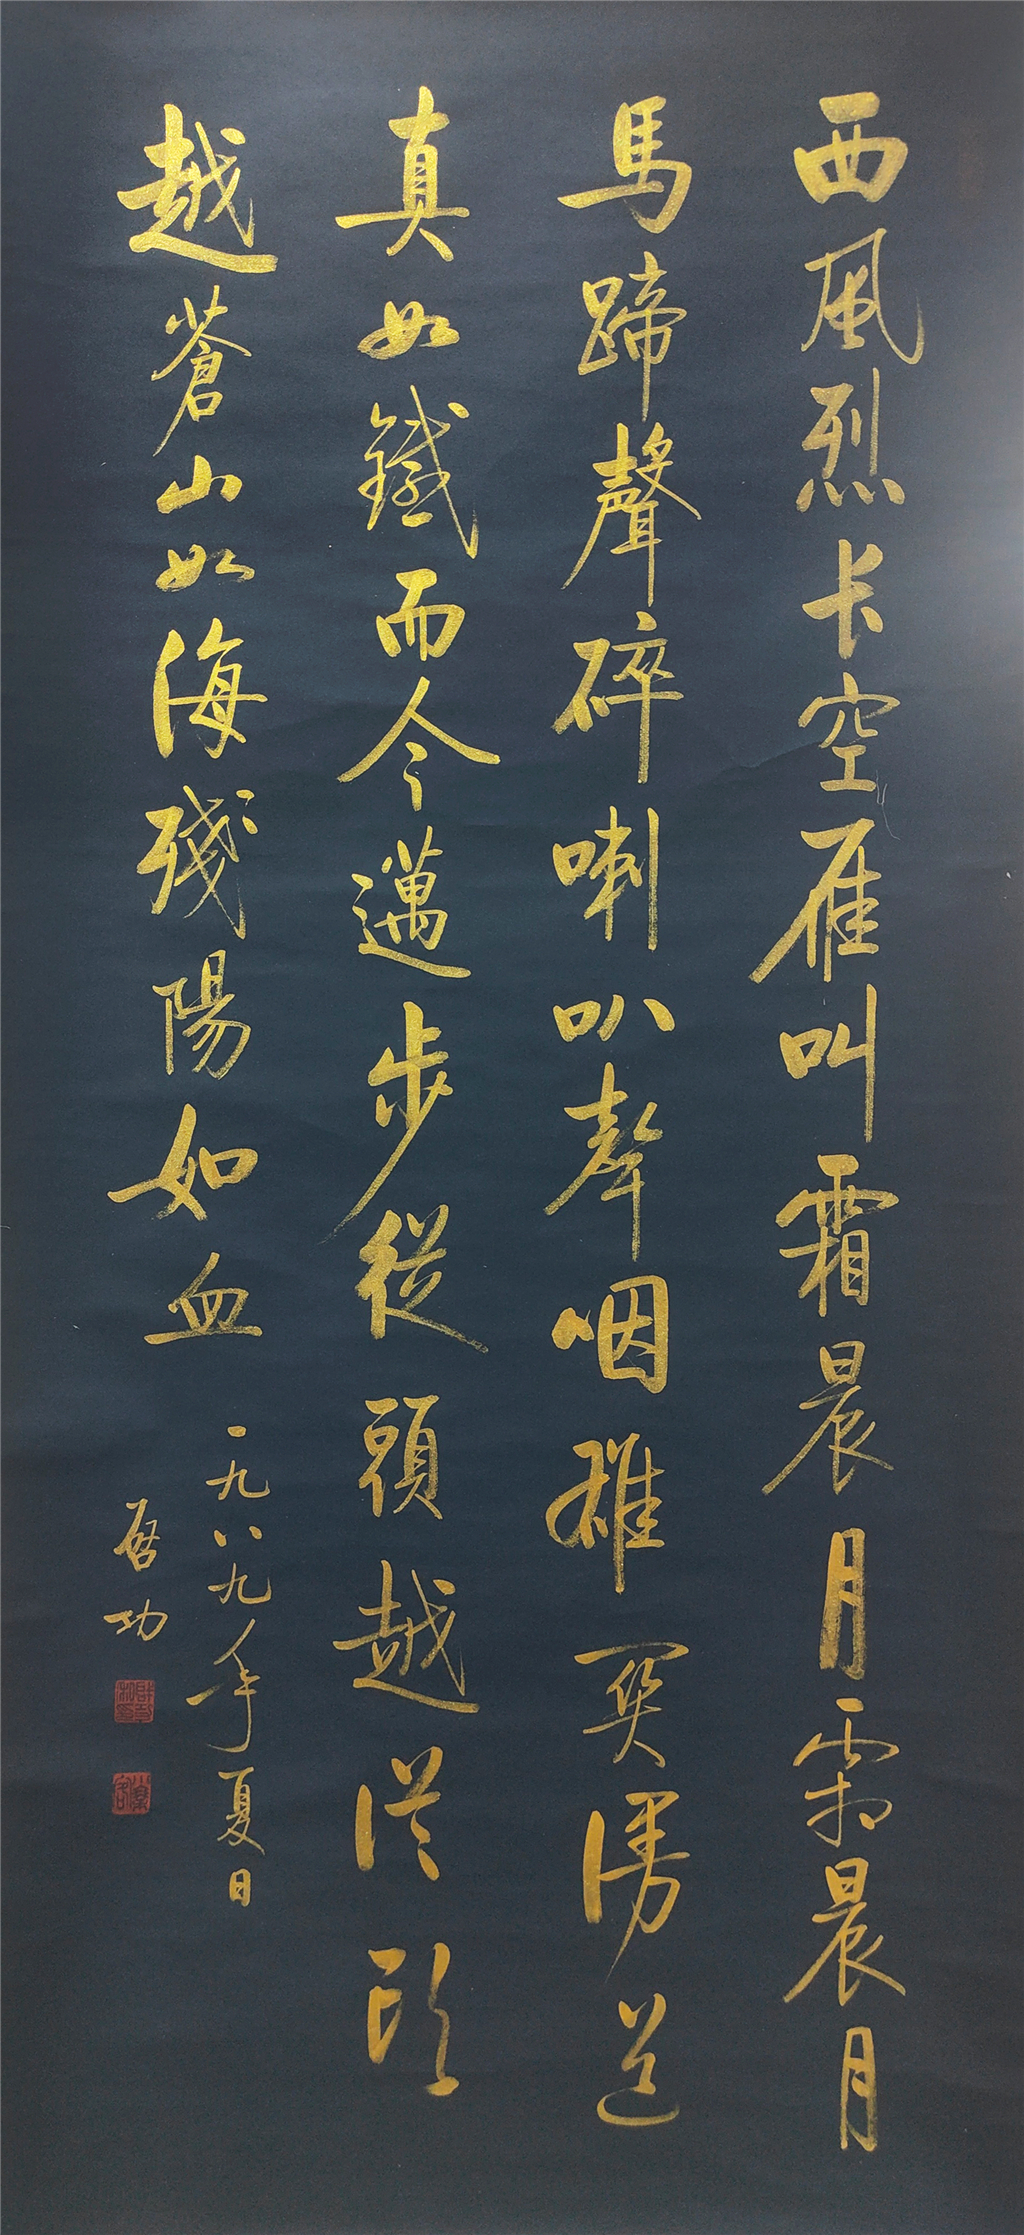 西風烈长空雁叫霜晨月霜晨月
馬蹄聲碎喇叭聲咽雄關漫道
真如鐵而今邁步從頭越從頭
越蒼山如海殘陽如血
一九八九年夏日
启功